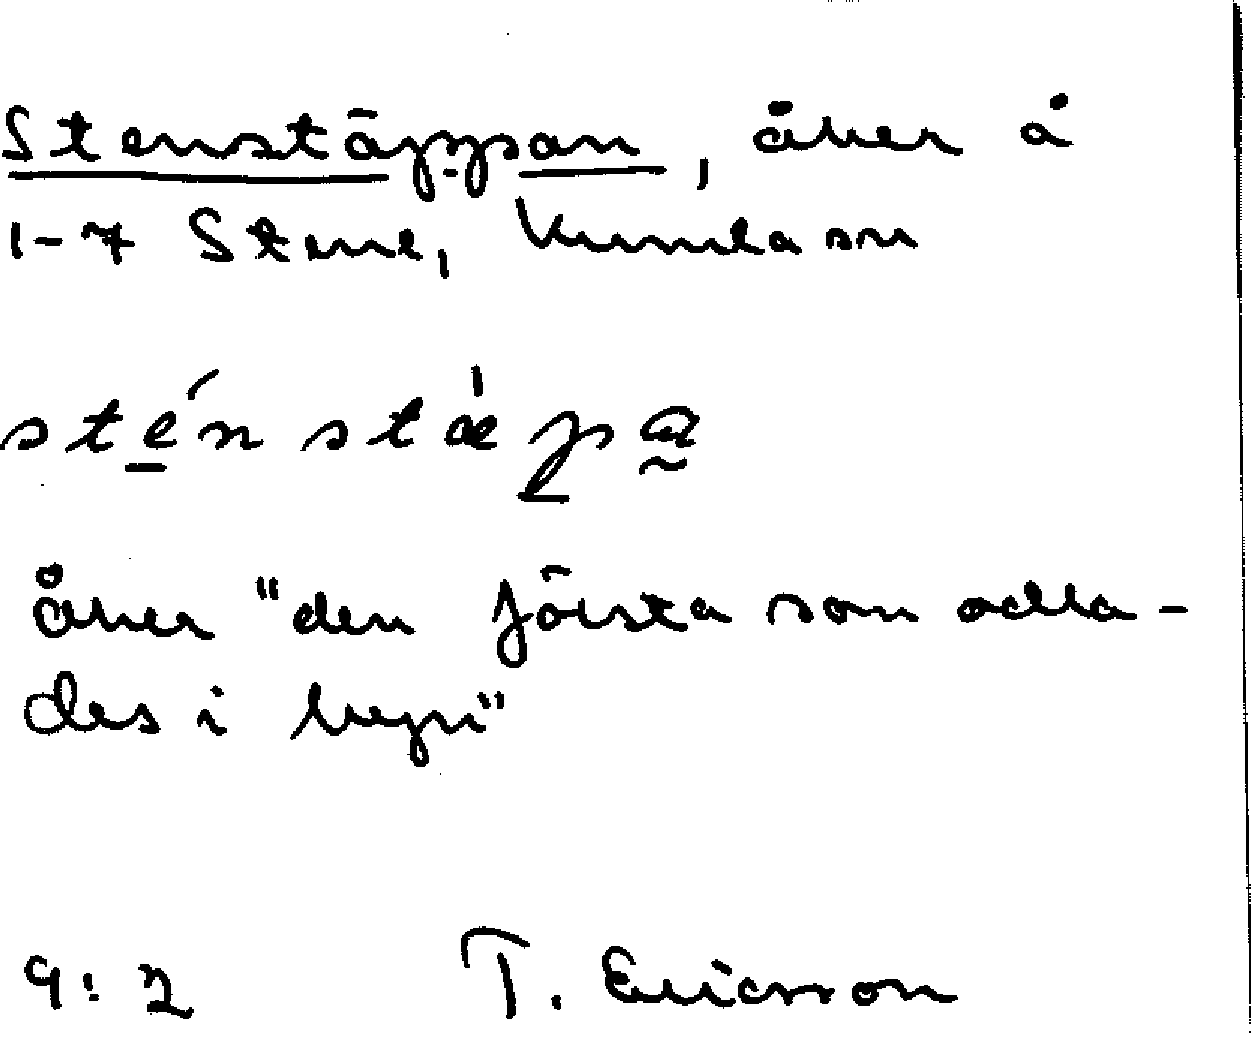 Stenstäppan, åker å
1-7 Stene, Kumla sn
sténstæ̀pa
åker "den första som odla-
des i byn"
9:2 T. Ericsson